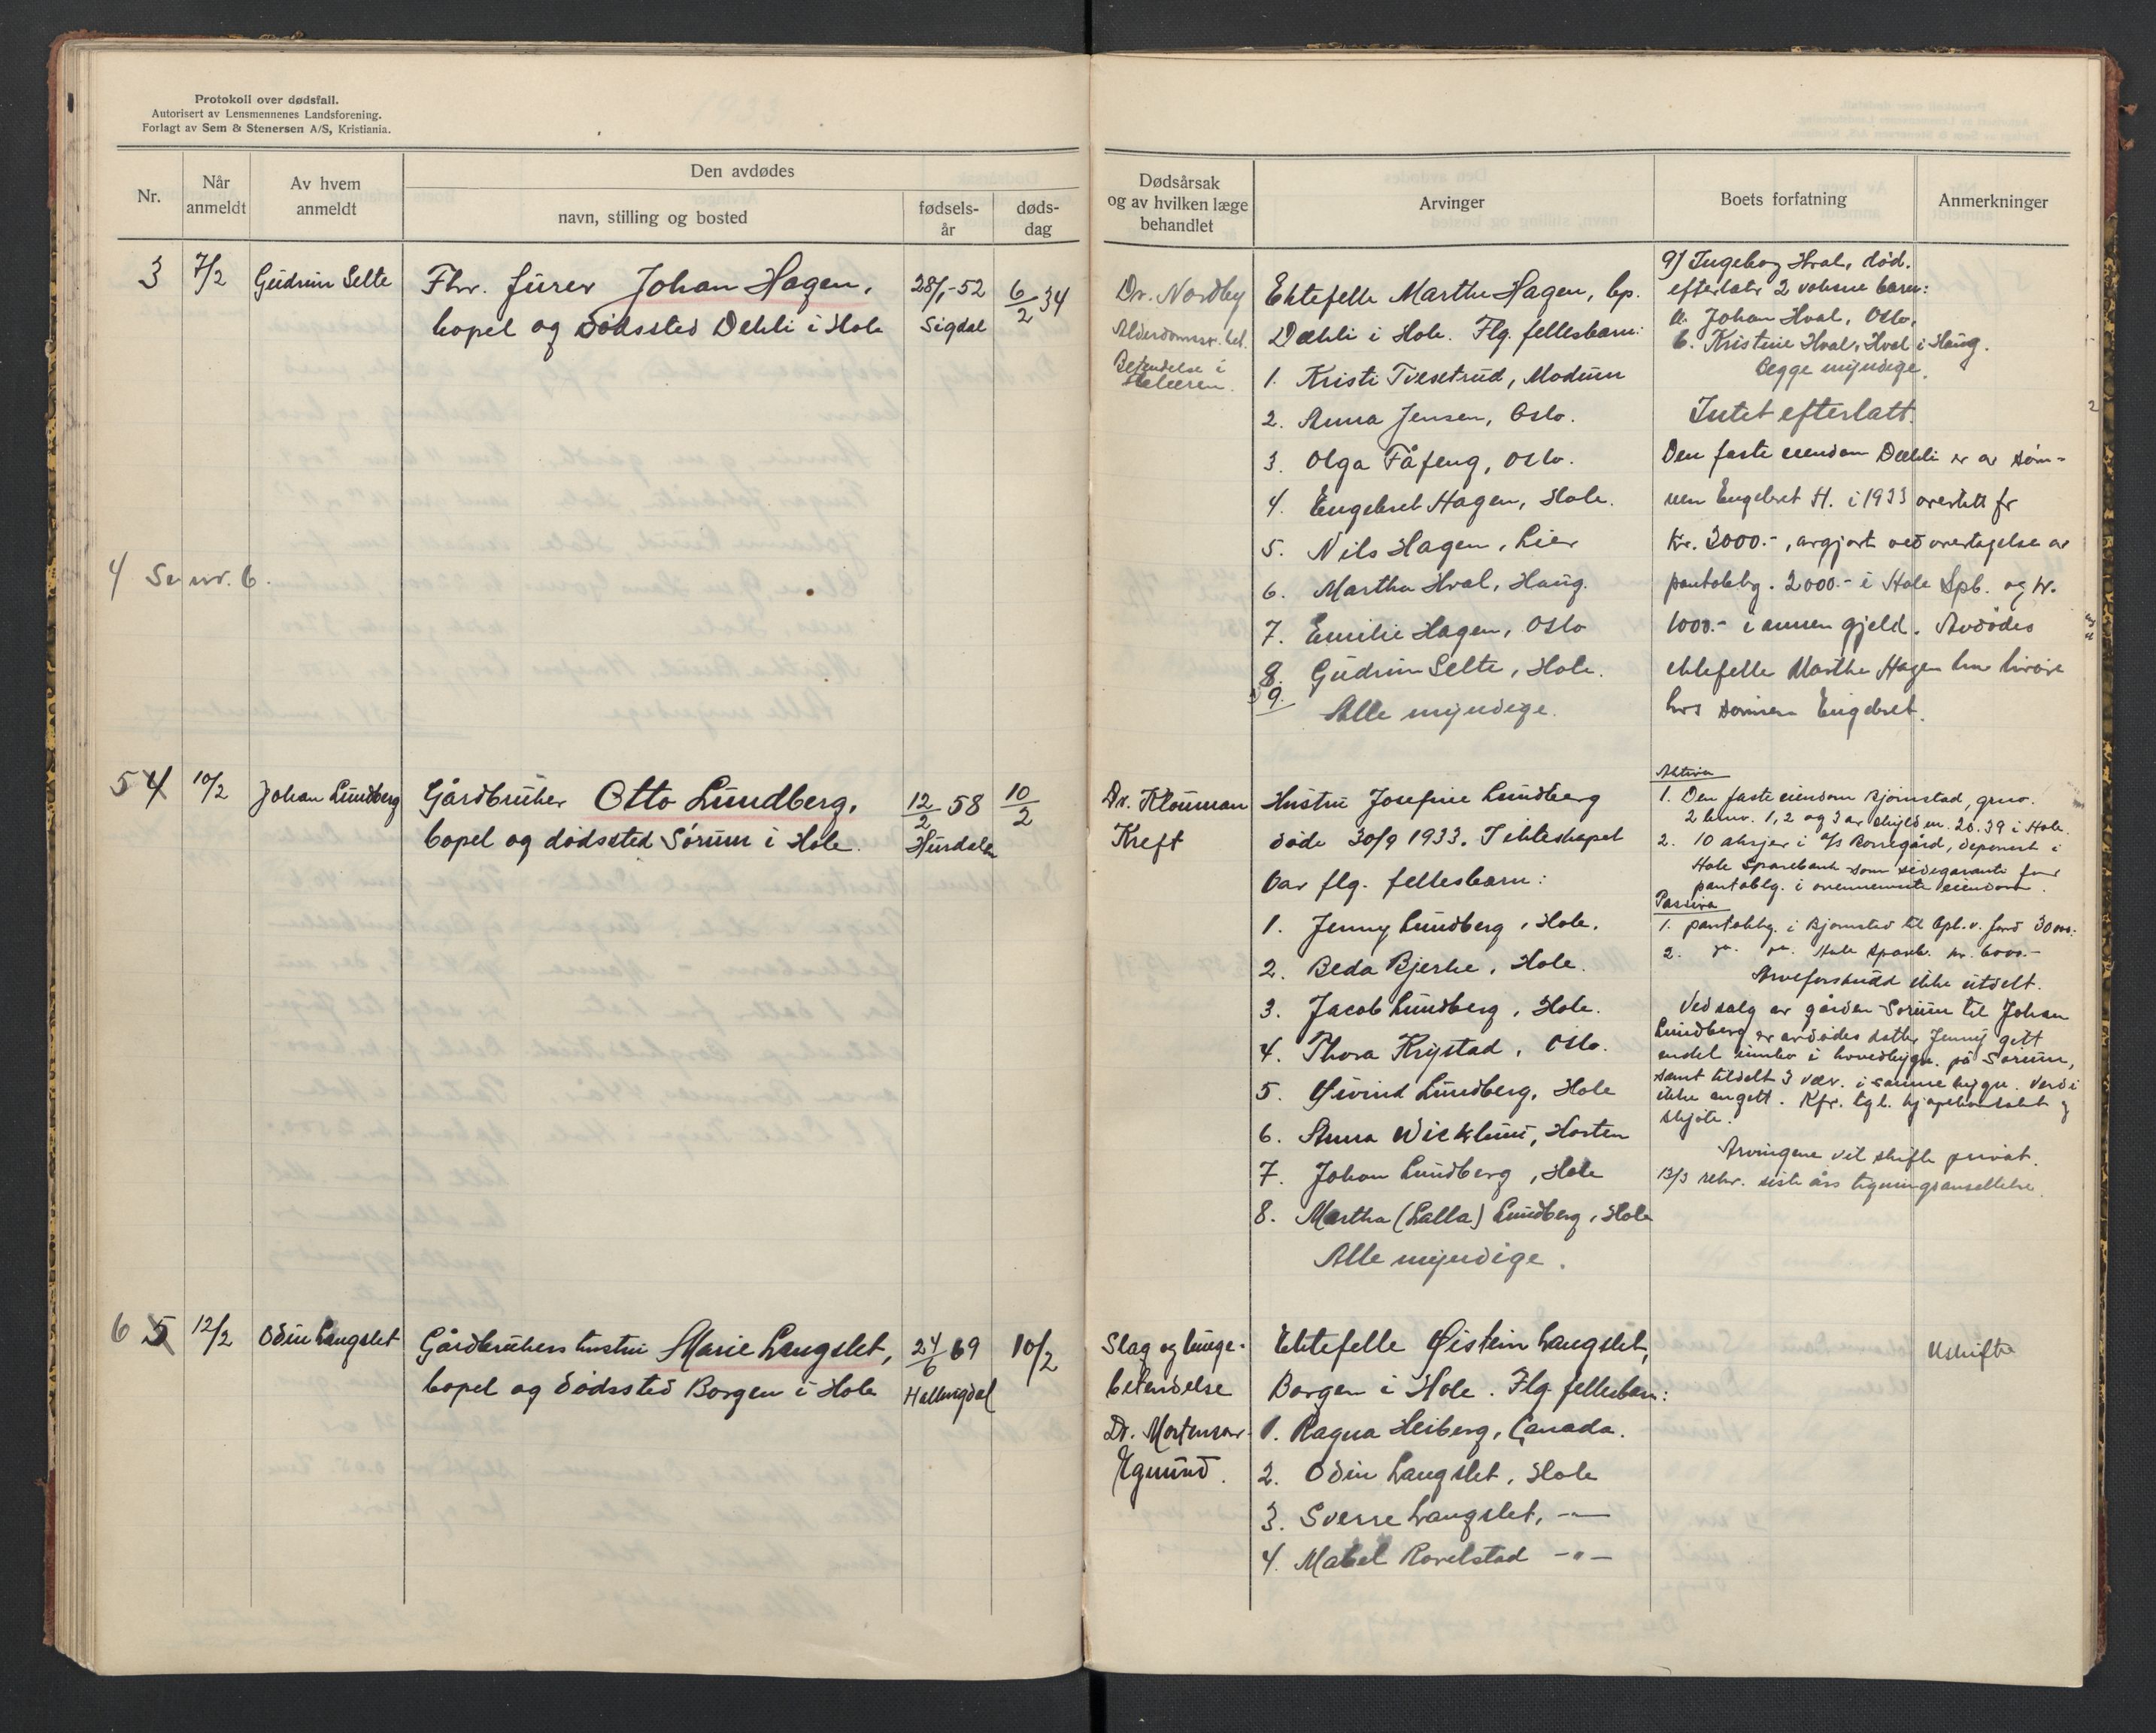 Protokoll over dødsfall.
Autorisert av Lensmennenes Landsforening.
Forlagt av Sem & Stenersen A/S, Kristiania.
Nr.
Når anmeldt
Av hvem anmeldt
Den avdødes
navn, stilling og bosted
fødsels-år
døds-dag
Dødsårsak og av hvilken læge behandlet
Arvinger
Boets forfatning
Anmerkninger
3
7/2
Gudrun Selte
Fhv. furer Johan Hagen,
bopel og dødssted Dehli i Hole
28/1-52
Sigdal
6/2 34
Dr. Nordby
Betendelse i
Ektefelle Marthe Hagen, bp.
Dæhli i Hole. Flg. fellesbarn:
1. Kristi Tvesetrud, Modum
2. Anna Jensen, Oslo.
3. Olga Fåfeng, Oslo.
4. Engebret Hagen, Hole.
5. Nils Hagen, Lier
6. Martha Hval, Haug.
7. Emilie Hagen, Oslo
8. Gudrun Selte, Hole.
9.
Alle myndige.
9/ Ingeborg Hval, død.
efterlatr 2 voksne barn:
a. Johan Hval, Oslo,
b. Kristine Hval, Hval i Haug.
begge myndige.
Intet efterlatt.
Den faste eiendom Dæhli er av søn-
nen Engebret H. i 1933 overtatt for
kr. 3000.-, avgjort ved overtagelse av
pantoblg. 2000.- i Hole Spb. og kr.
1000.- i annen gjeld. Avdødes
ektefelle Marthe Hagen har livøre
hos sønnen Engebret.
4 Se nr. 6.
5 4
10/2
Johan Lundberg
Gårdbruker Otto Lundberg,
bopel og dødssted Sørum i Hole.
12/2 58
Hurdalen
10/2
Dr. Klouman
Kreft
Hustru Josefine Lundberg
døde 30/9 1933. I ekteskapet
var flg. fellesbarn:
1. Jenny Lundberg, Hole.
2. Beda Bjerke, Hole.
3. Jacob Lundberg, Hole.
4. Thora Krystad, Oslo.
5. Øivind Lundberg, Hole
6. Anna Wicklund, Horten
7. Johan Lundberg, Hole
8. Martha (Lalla) Lundberg, Hole
Alle myndige.
Aktiva
1. Den faste eiendom Bjørnstad, gnr.
2 bnr. 1, 2 og 3 av skyld m. 20.39 i Hole.
2. 10 aksjer i A/S Borregård, deponert i
Hole Sparebank som sidegaranti for
pantoblg. i ovennevnte eiendom.
Passiva
1. pantoblg. i Bjørnstad til Opl. v. jord 30000.-
2. do. do. Hole Spareb. kr. 6000.-
Arveforskudd ikke utdelt.
Ved salg av gården Sørum til Johan
Lundberg er avdødes datter Jenny gitt
endel innbo i hovedbygn. på Sørum,
samt tildelt 3 vær. i samme bygn. Verdi
ikke angitt. Kfr. tgl. kjøpekontrakt og
skjøte.
Arvingene vil skifte privat.
13/3 rekv. siste års ligningsansettelse.
6 5
12/2
Odin Langslet
Gårdbrukers hustru Marie Langslet,
bopel og dødssted Borgen i Hole
24/6 69
Hallingdal
10/2
Slag og lunge-
betendelse
Dr. Mortensen-
Egnund.
Ektefelle Øistein Langslet,
Borgen i Hole. Flg. fellesbarn:
1. Ragna Heiberg, Canada.
2. Odin Langslet, Hole
3. Sverre Langslet, -"-
4. Mabel Rovelstad -"-
Uskifte